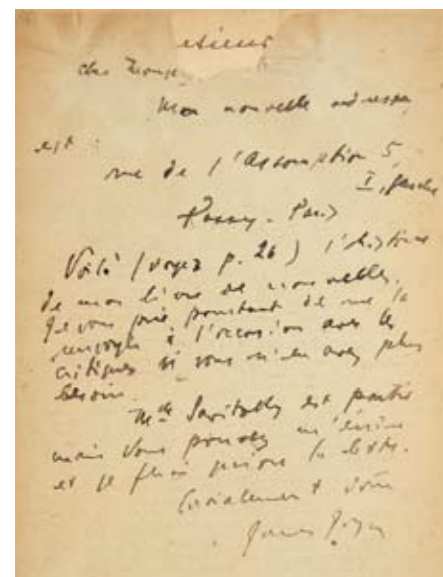 Mon nouvelle adresse
est
rue de l'Assomption 5,
I, gauche
Passy - Paris
Voilà (voyez p. 26) l'histoire
de mon livre de nouvelles.
Je vous prie pourtant de me la
renvoyer à l'occasion avec les
critiques si vous n'en avez plus
besoin.
est partie
mais vous pouvez m'écrire
et je ferai suivre la lettre.
Cordialement vôtre
James Joyce